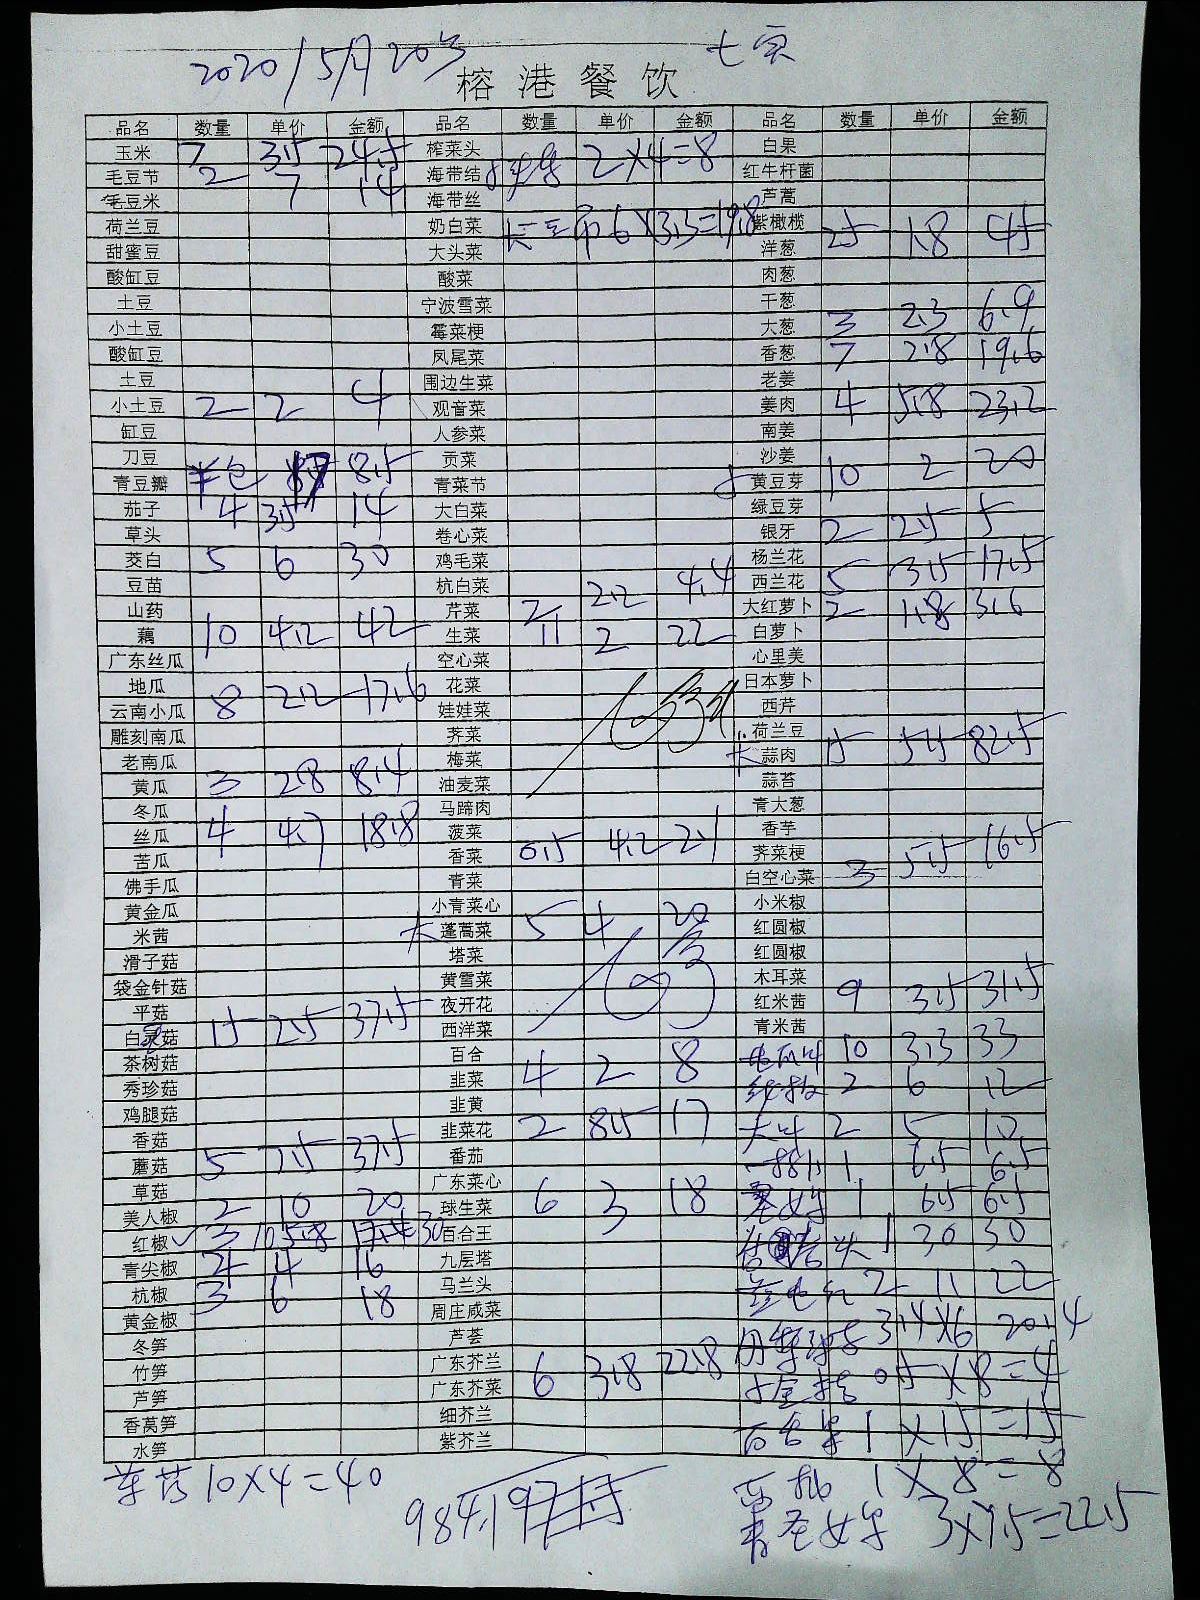 2020/5月20号
榕港餐饮
品名 数量 单价 金额 品名 数量 单价 金额 品名 数量 单价 金额
玉米 7 3.5 24.5 榨菜头 白果
毛豆节 2 7 14 海带结 2×4=8 红牛杆菌
毛豆米 海带丝 芦蒿
荷兰豆 奶白菜 6×3.3=19.8 紫橄榄
甜蜜豆 大头菜 洋葱 25 1.8 45
酸缸豆 酸菜 肉葱
土豆 宁波雪菜 干葱
小土豆 霉菜梗 大葱 3 2.3 6.9
酸缸豆 凤尾菜 香葱 7 2.8 19.6
土豆 围边生菜 老姜
小土豆 2 2 4 观音菜 姜肉 4 5.8 23.2
缸豆 人参菜 南姜
刀豆 贡菜 沙姜
青豆瓣 半包 8.5 青菜节 黄豆芽 10 2 20
茄子 4 3.5 14 大白菜 绿豆芽
草头 卷心菜 银牙 2 2.5 5
茭白 5 6 30 鸡毛菜 杨兰花
豆苗 杭白菜 西兰花 5 3.5 17.5
山药 芹菜 2 2.2 4.4 大红萝卜 2 1.8 3.6
藕 10 4.2 42 生菜 11 2 22 白萝卜
广东丝瓜 空心菜 心里美
地瓜 花菜 日本萝卜
云南小瓜 8 2.2 17.6 娃娃菜 西芹
雕刻南瓜 荠菜 荷兰豆
老南瓜 梅菜 蒜肉 15 5.5 82.5
黄瓜 3 2.8 8.4 油麦菜 蒜苔
冬瓜 马蹄肉 青大葱
丝瓜 4 4.7 18.8 菠菜 香芋
苦瓜 香菜 0.5 4.2 2.1 荠菜梗
佛手瓜 青菜 白空心菜 3 5.5 16.5
黄金瓜 小青菜心 小米椒
米茜 大 蓬蒿菜 5 4 20 红圆椒
滑子菇 塔菜 红圆椒
袋金针菇 黄雪菜 木耳菜
平菇 夜开花 红米茜 9 3.5 31.5
白灵菇 15 2.5 37.5 西洋菜 青米茜
茶树菇 百合 10 3.3 33
秀珍菇 韭菜 4 2 8 2 6 12
鸡腿菇 韭黄
香菇 韭菜花 2 8.5 17 大叶 2 5 10
蘑菇 5 7.5 37.5 番茄 1 6.5 6.5
草菇 广东菜心
美人椒 2 10 20 球生菜 6 3 18 1 6.5 6.5
红椒 3 10 30 百合王 1 30 30
青尖椒 4 4 16 九层塔
杭椒 3 6 18 马兰头 2 11 22
黄金椒 周庄咸菜
冬笋 芦荟 3.4×6 20.4
竹笋 广东芥兰
芦笋 广东芥菜 6 3.8 22.8 0.5×8=4
香莴笋 细芥兰
水笋 紫芥兰 1×15=15
10×4=40
1×8=8
984.1
圣女果 3×7.5=22.5